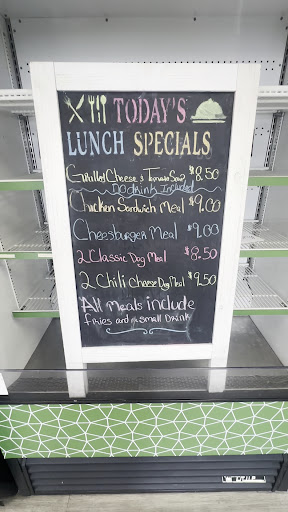 TODAY'S
LUNCH SPECIALS
Grilled Cheese & Tomato Soup $8.50
No drink Included
Chicken Sandwich Meal $9.00
Cheesburger Meal $9.00
2 Classic Dog Meal $8.50
2 Chili Cheese Dog Meal $9.50
All Meals include
fries and a small Drink
true